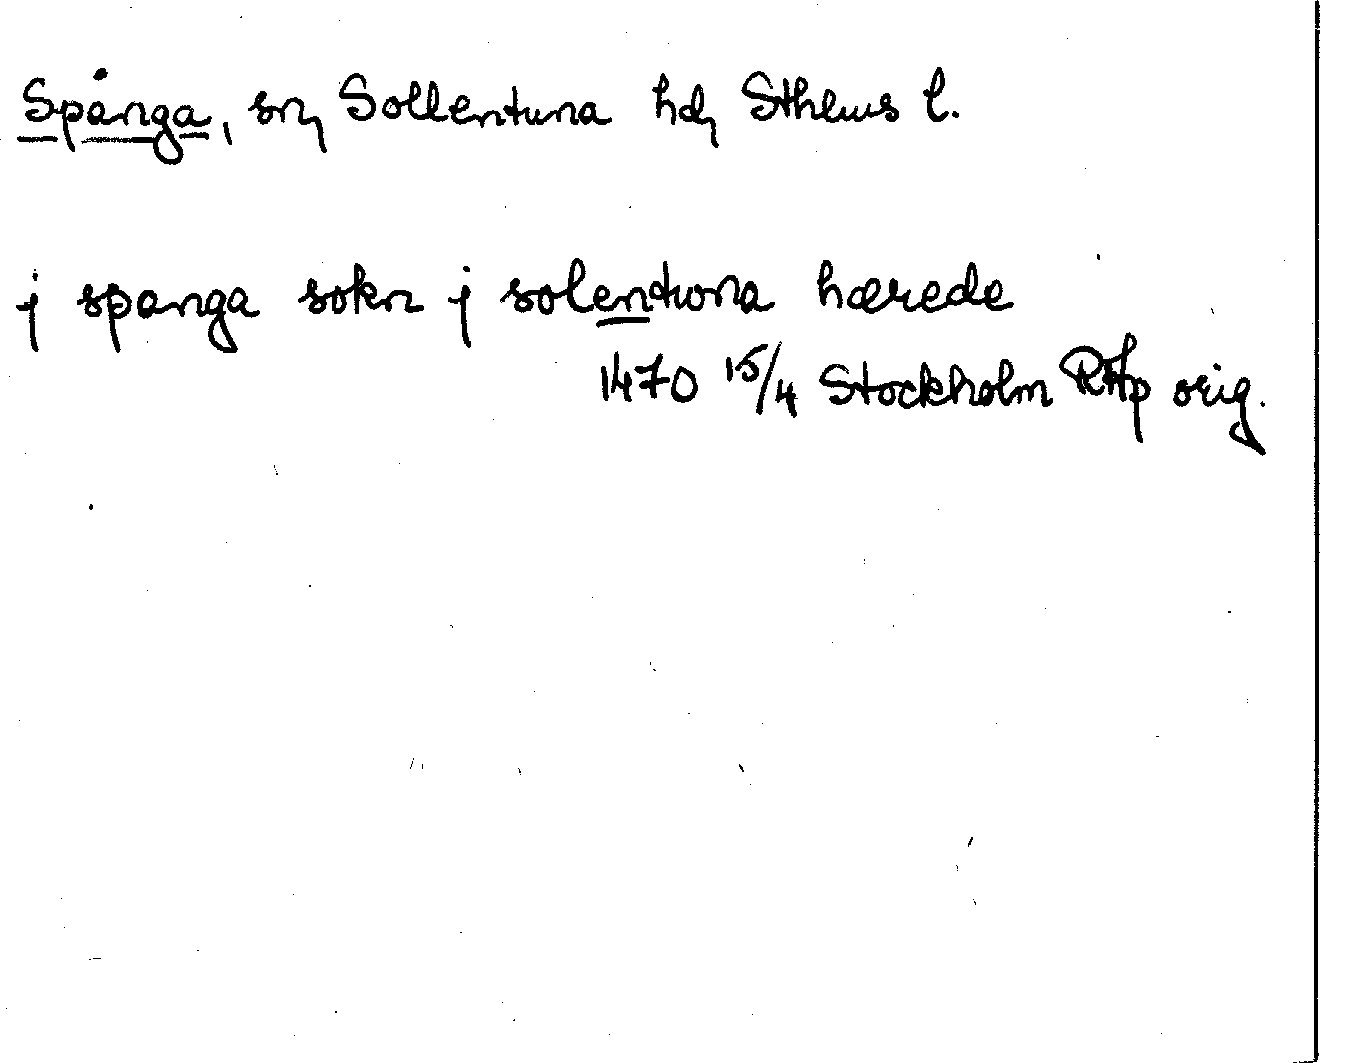 Spånga, sn, Sollentuna hd, Sthlms l.
j spanga sokn j solentwna hærede
1470 15/4 Stockholm RAp orig.